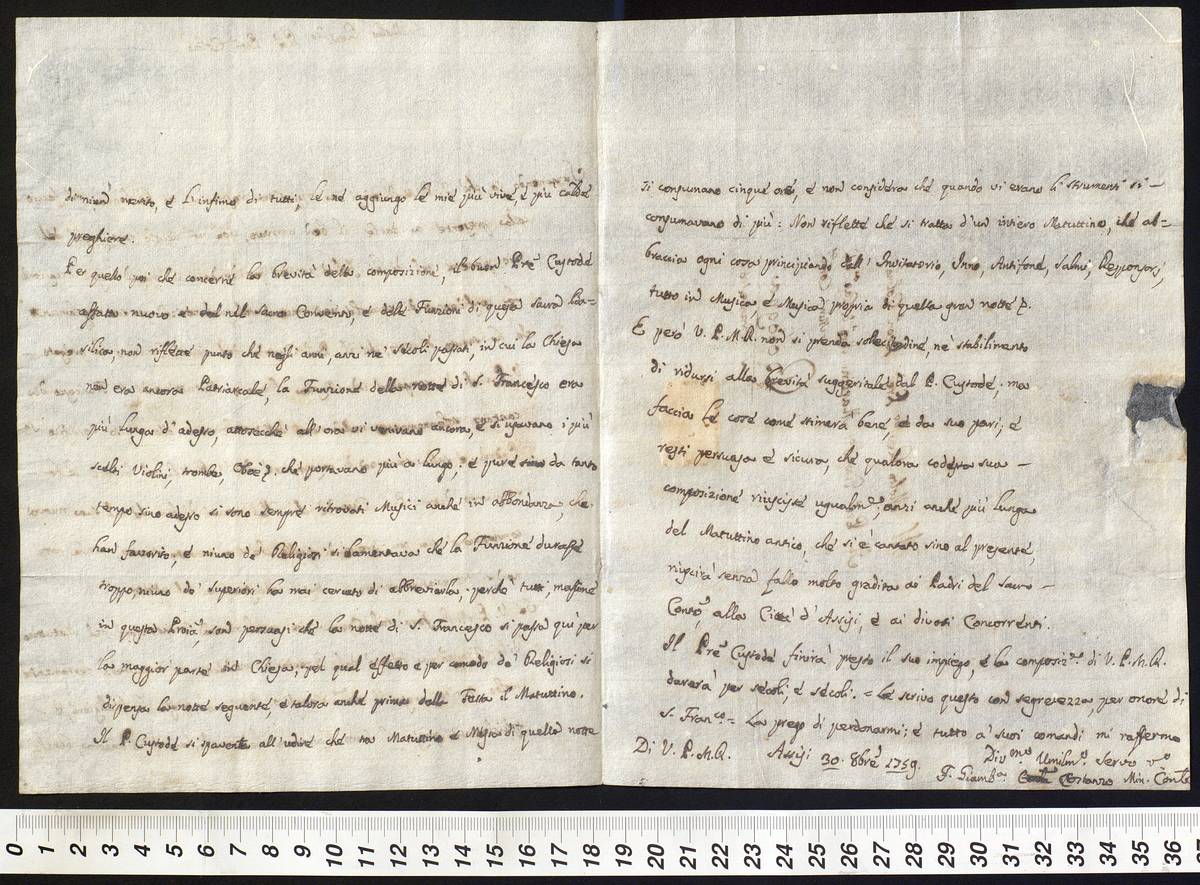 di niun merito, e l'infimo di tutti, le ne aggiungo le mie più vive, e più calde
preghiere.
Per quello poi che concerne la brevità della composizione, il buon Prē Custode
affatto nuovo e del nrō Sacro Convento, e delle Funzioni di questa Sacra Ba=
silica, non riflette punto che negli anni, anzi ne' secoli passati, in cui la Chiesa
non era ancora Patriarcale, la Funzione della notte di S. Francesco era
più lunga d'adesso, attesocchè all'ora vi venivano ancora, e si usavano i più
scelti Violini, trombe, Oboè, che portavano più a lungo; e pure da tanto
tempo sino adesso si sono sempre ritrovati Musici anche in abbondanza, che
han favorito, e niuno de' Religiosi si lamentava che la Funzione durasse
troppo, niuno de' Superiori ha mai cercato di abbreviarla, perchè tutti, massime
in questa Proīa, son persuasi che la notte di S. Francesco si passa quì per
la maggior parte in Chiesa; pel qual effetto e per comodo de' Religiosi si
dispensa la notte seguente, e talora anche prima della Festa il Matuttino.
Il P. Custode si spaventa all'udire che tra Matuttino e Messa di quella notte
si consumano cinque ore, e non considera che quando vi erano li strumenti si
consumavano di più: Non riflette che si tratta d'un intiero Matuttino, che ab=
braccia ogni cosa principiando dall'Invitatorio, Inno, Antifone, Salmi, Responsorj,
tutto in Musica, e Musica propria di quella gran notte
E però V. P. M. R. non si prenda solecitudine, ne stabilimento
di ridursi alla brevità suggeritale dal P. Custode, ma
faccia le cose come stimerà bene, e da suo pari, e
resti persuasa e sicura, che qualora codesta sua
composizione riuscisse ugualmte, anzi anche più lunga
del Matuttino antico, che si è cantato sino al presente,
riuscirà senza fallo molto gradita ai Padri del sacro
Conto, alla Città d'Assisi, e ai divoti Concorrenti.
Il Prē Custode finirà presto il suo impiego, e la composizne di V. P. M. R.
durerà per secoli, e secoli. = Le scrivo questo con segretezza, per onore di
S. Franco = La prego di perdonarmi; e tutto a' suoi comandi mi raffermo
Di V. P. M. R. Assisi 30. 8bre 1759.
Divmo Umilmo Servo vo
F. Giamba Costanzo Min. Conle